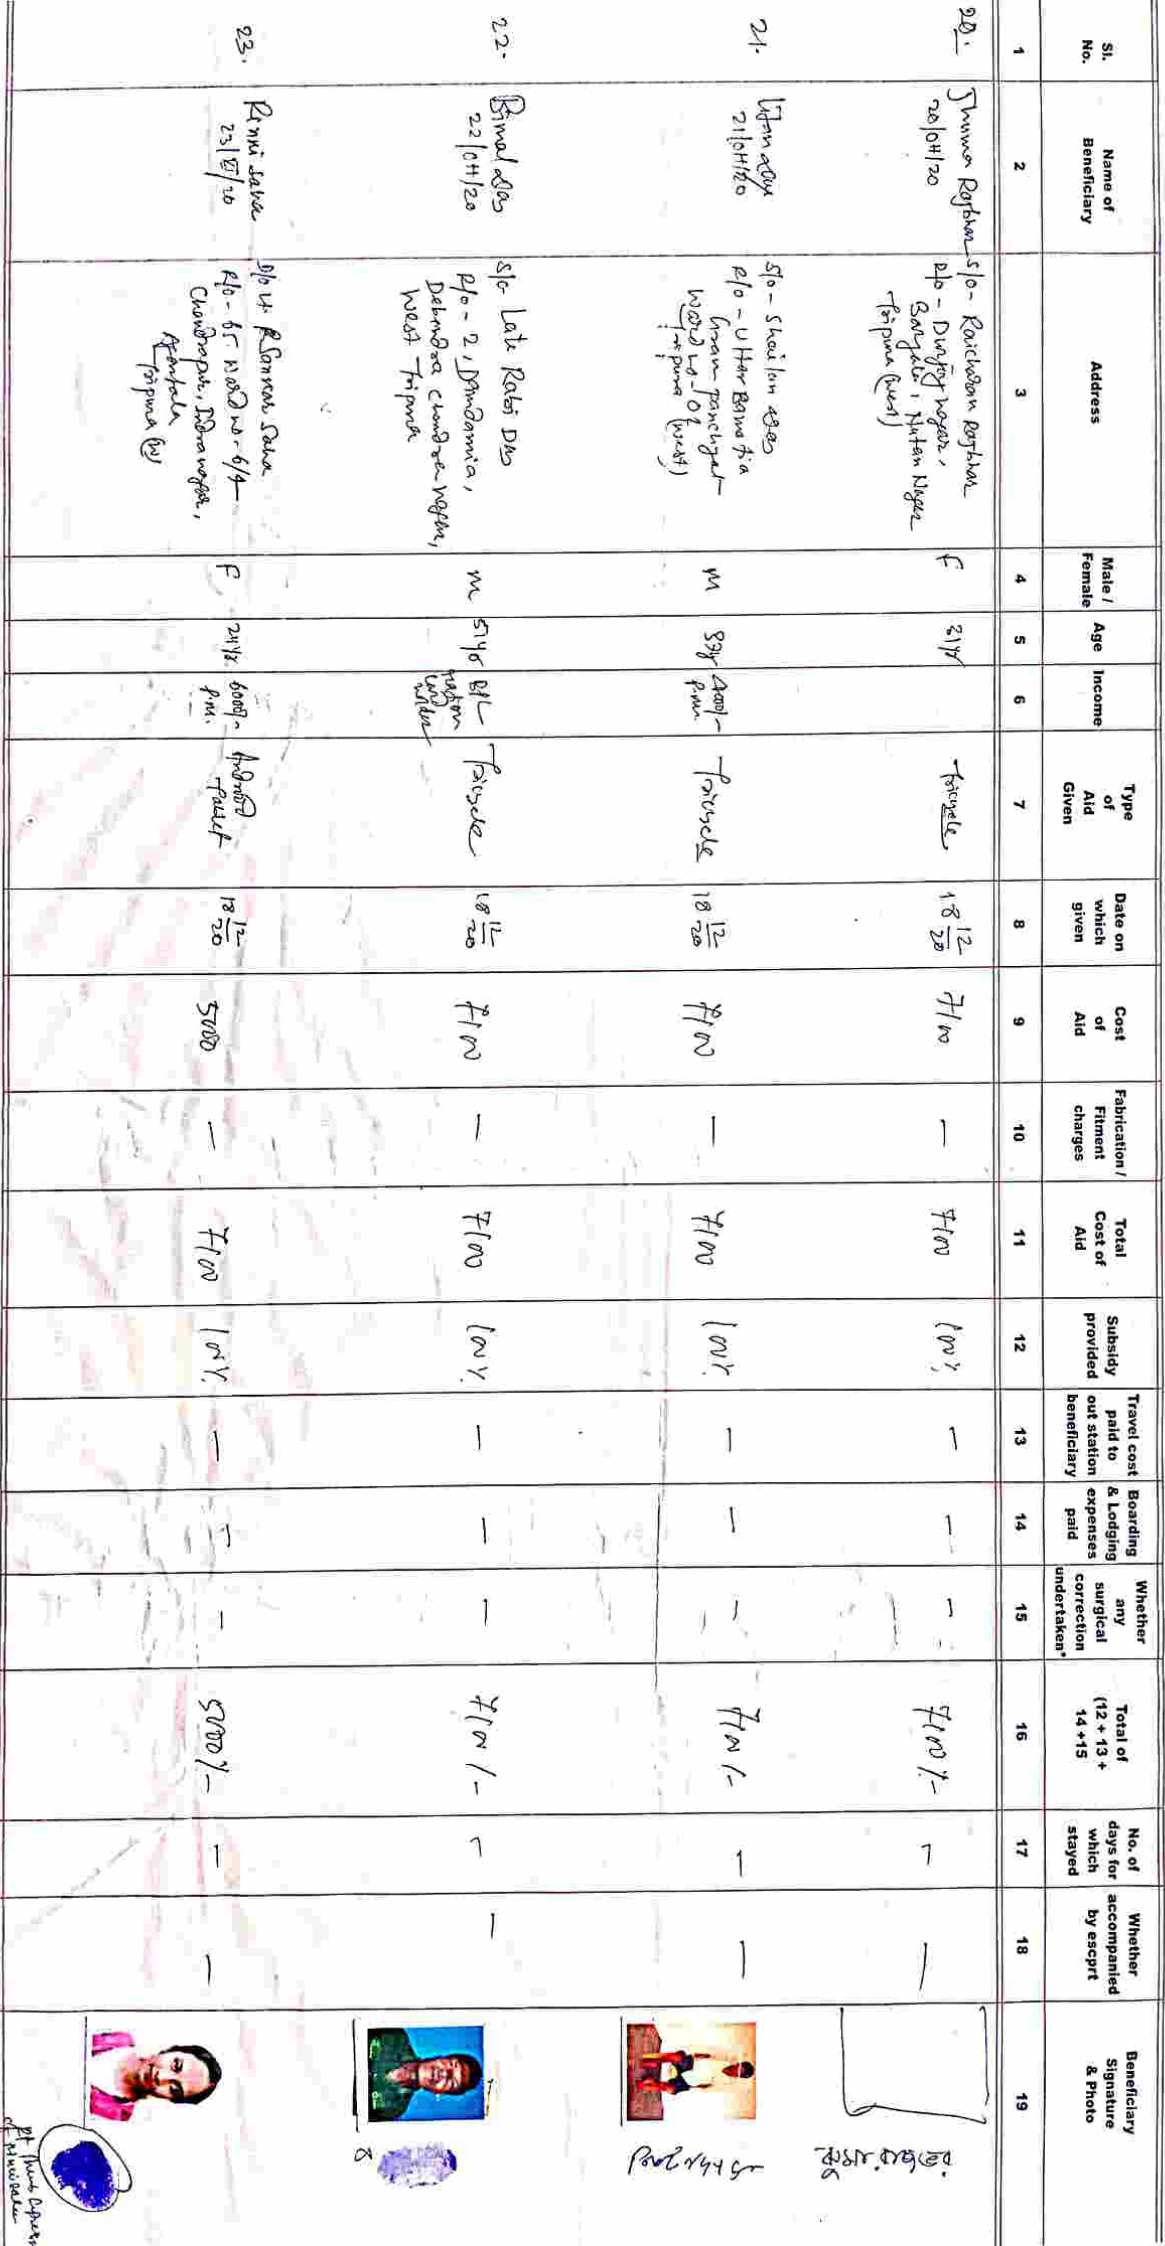 Sl. No.
Name of Beneficiary
Address
Male / Female
Age
Income
Type of Aid Given
Date on which given
Cost of Aid
Fabrication / Fitment charges
Total Cost of Aid
Subsidy provided
Travel cost paid to out station beneficiary
Boarding & Lodging expenses paid
Whether any surgical correction undertaken*
Total of (12 + 13 + 14 +15
No. of days for which stayed
Whether accompanied by escprt
Beneficiary Signature & Photo
1 2 3 4 5 6 7 8 9 10 11 12 13 14 15 16 17 18 19
20.
Jhuma Rajbhar
20/04/20
S/o - Raicharan Rajbhar
R/o - Durjoy nagar,
Nutan Nagar
Tripura (west)
F
Tricycle
18 12/20
7100
—
7100
100%
—
—
—
7100/-
—
—
21.
21/04/20
S/o - Shailan das
R/o - Uttar Bamutia
Gram panchyat
Ward no - 02
Tripura (west)
M
4000/-
P.m.
Tricycle
18 12/20
7100
—
7100
100%
—
—
—
7100/-
—
—
22.
Bimal Das
22/04/20
S/o Late Rabi Das
R/o - 2, Dandamia,
Debendra chandra nagar,
West Tripura
M
51yr
BPL
ration
card
holder
Tricycle
18 12/20
7100
—
7100
100%
—
—
—
7100/-
—
—
23.
Rinki Saha
23/ /20
Saha
R/o - 65 Ward no - 6/4
Chandrapur, Indranagar,
Agartala
Tripura (W)
F
24yr
6000/-
P.m.
Android
Tablet
18 12/20
5000
—
7100
100%
—
—
—
5000/-
—
—
Rt Thumb Impression